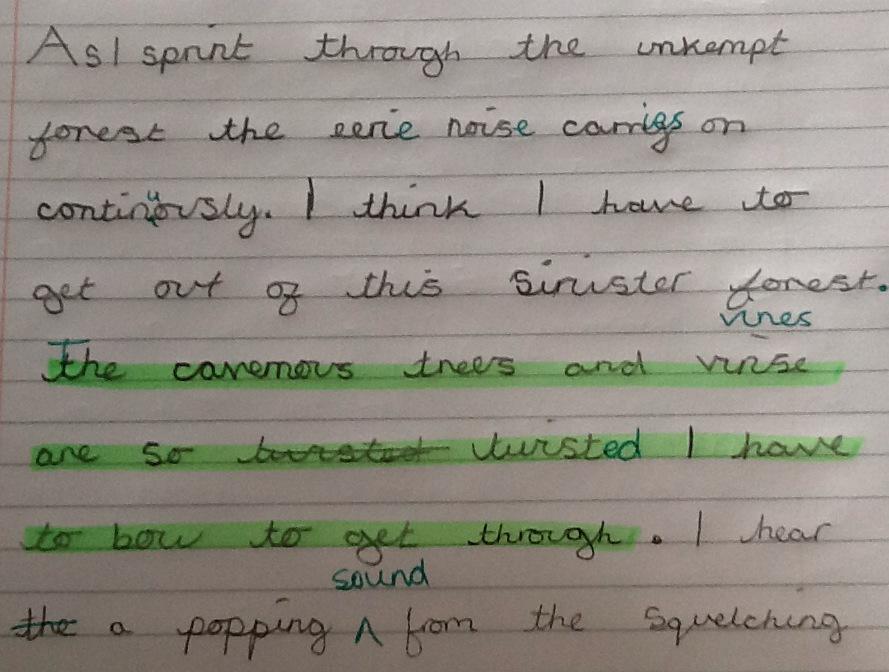 As I sprint through the unkempt
forest the eerie noise carries on
continuously. I think I have to
get out of this sinister forest.
vines
The cavernous trees and vinse
are so twisted twisted I have
to bow to get through. I hear
sound
the a popping ^ from the squelching